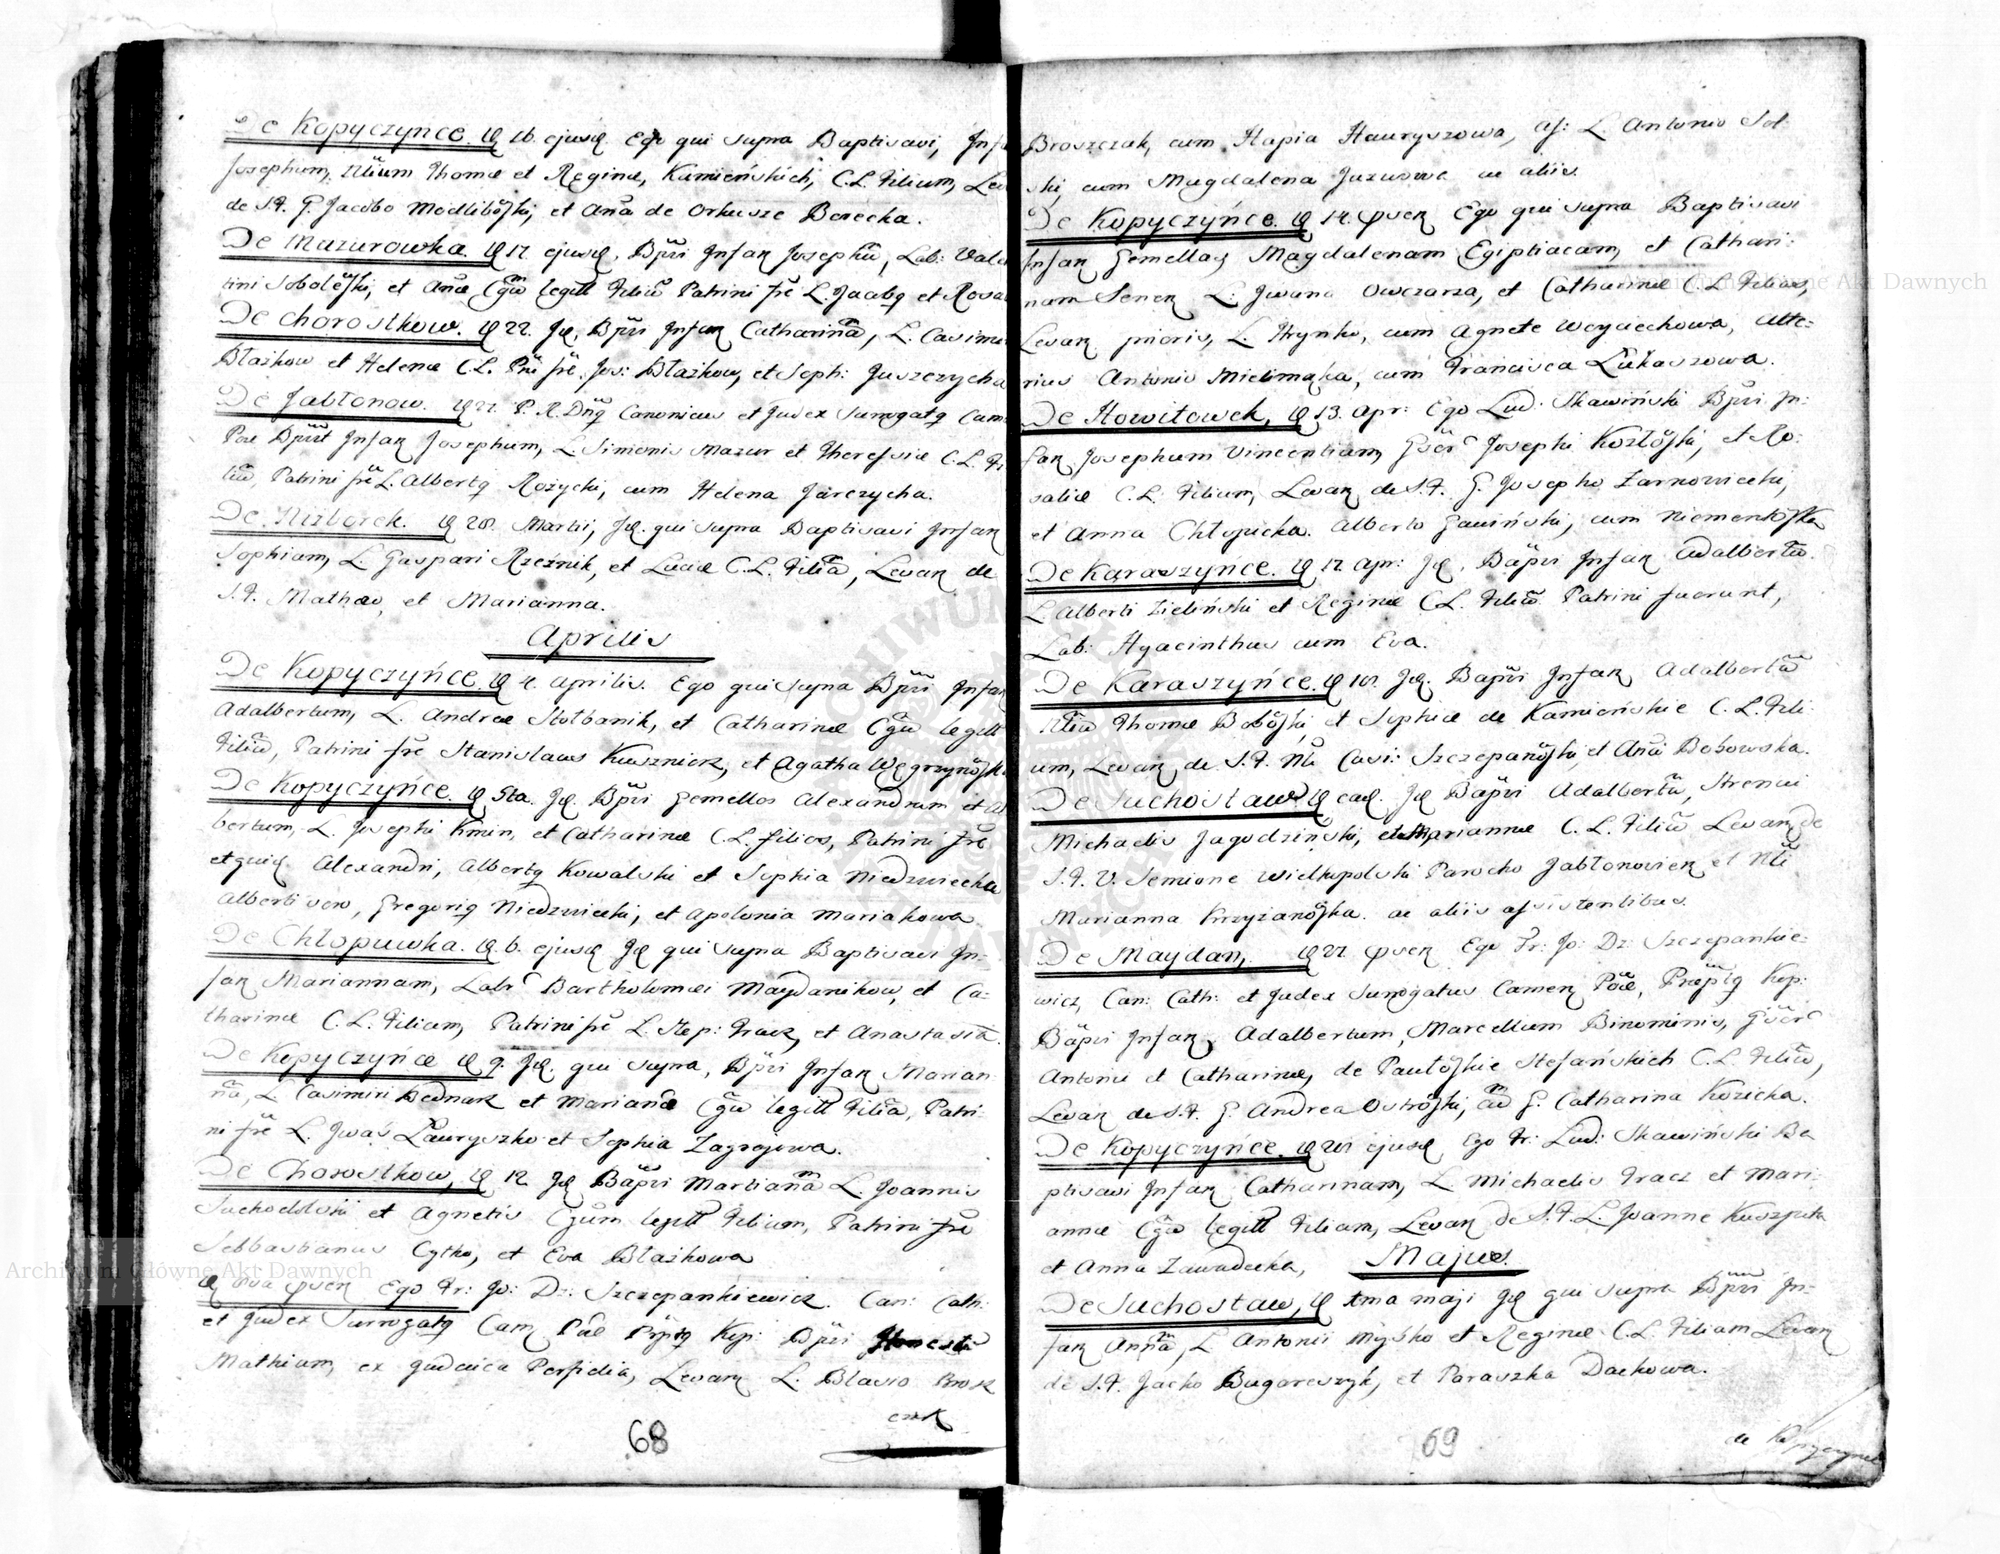 De Kopyczynce. 16. ejusd. Ego qui supra Baptisavi, Inf
Josephum, Thomæ et Reginæ, Kamieńskich, C.L. Filium, Lev
de S.F. G. Jacobo Modlibosski, et Aña de Orkusze Berecka.
De Mazurowka. 17. ejusd, Bpũi Infan Josephũ, Lab: Vale
tini Sobolesski, et Anæ Cgũ legitt Filiũ Patrini frẽ L. Jacob9 et Rosa
De Chorostkow. 22. Jd, Bpũi Infan Catharinã, L. Casimi
Błażkow et Helenæ C.L. Pñi frẽ. Jos: Błażkow, et Soph: Juszczycha
De Jabłonow. 27. P. R. Dñ9 Canonicus et Judex Surrogat9 Cam
Poe Bpũt Infan Josephum, L. Simonis Mazur et Theressiæ C.L. Fi
liũ, Patrini frẽ L. Albert9 Rożycki, cum Helena Jarczycha.
De Niżborek. 28. Martii, Jd. qui supra Baptisavi Infan
Sophiam, L. Gaspari Rzeźnik, et Luciæ C.L. Filiã, Levan de
S.F. Mathæo, et Marianna.
Aprilis
De Kopyczyńce. 4. Aprilis. Ego qui supra Bpũi Infan
Adalbertum, L. Andreæ Stolbanik, et Catharinæ Cgũ legitt
Filiũ, Patrini frẽ Stanislaus Kusznierz, et Agatha Węgrzynosk
De Kopyczyńce. 5ta. Jd. Bpũi Gemellos Alexandrum et Al
bertum, L. Josephi Kmin, et Catharinæ C.L. filios, Patrini frẽ
et quid. Alexandri, Albert9 Kowalski et Sophia Niedzwiecka
Alberti vero, Gregori9 Niedzwiecki, et Apolonia Mariakowa
De Chłopuwka. 6. ejusd Jd qui supra Baptisavi In-
fan Mariannam, Labr Bartholomæi Maydanikow, et Ca-
tharinæ C.L. Filiam, Patrini frẽ L. Step: Tracz, et Anastasia.
De Kopyczyńce 9. Jd. qui supra, Bpũi Infan Marian
nã, L. Casimiri Bednarz et Marianæ Cgũ legitt Filiã, Patri-
ni frẽ L. Jwaś Ławryszko et Sophia Zagrajowa.
De Chorostkow, 12. Jd Bãpũi Martianã L. Joannis
Suchodolski et Agnetis Cgũm legitt Filium, Patrini frẽ
Sebbastianus Cytko, et Eva Błażkowa
Ego Fr: Jo: Dz: Szczepankiewicz. Can: Cath:
et Judex Surrogat9 Cam Põe Kop: Bpũi
Mathiam, ex Judaica Perfidia, Levan L. Blasio Brosz
czak
68
Broszczak, cum Hapia Hawryszowa, as: L. Antonio Sol
ski, cum Magdalena Juzwowe ac aliis.
De Kopyczyńce. 14. Ego qui supra Baptisavi
Infan Gemellas Magdalenam Egiptiacam, et Cathari-
nam Senen L. Jwana Owczarza, et Catharinæ C.L. Filias,
Levan prioris, L. Hrynko, cum Agnete Woyciechowa, Alte-
rius Antonio Mielimąka, cum Francisca Łukaszowa.
De Howiłowek, 13. Apr: Ego Lud. Skawiński Bpũi In-
fan Josephum Vincentium, Josephi Kozłosski, et Ro-
saliæ C.L. Filium, Levan de S.F. G. Josepho Zarnowiecki,
et Anna Chłopicka. Alberto Gawiński, cum Niementosska
De Karaszyńce. 17 Apr: Jd. Bãpũi Infan Adalbertũ.
L. Alberti Zieliński et Reginæ C.L. Filiũ. Patrini fuerunt,
Lab: Hyacinthus cum Eva.
De Karaszyńce. 18. Jd. Bapũi Infan Adalbertũ
Thomæ Bobosski, et Sophiæ de Kamieńskie C.L. Fili-
um, Levan de S.F. Casi: Szczepanosski et Anã Bobowska.
De Suchostaw ead. Jd Bãpũi Adalbertũ, Strenui
Michaelis Jagodziński, et Mariannæ C.L. Filiũ Levan de
S.F. V. Semione Wielkopolski Parocho Jabłonovien et
Marianna Krzyżanosska. ac aliis assistentibus.
De Maydan, 27. Ego Fr: Jo: Dz: Szczepankie-
wicz, Can: Cath: et Judex Surrogatus Camen Põe, Kop:
Bãpũi Infan Adalbertum, Marcellum Binominis,
Antonii et Catharinæ, de Pautosskie Stefańskich C.L. Filiũ,
Levan de S.F. G. Andrea Ostrosski, G. Catharina Kozicka.
De Kopyczyńce. 28 ejusd Ego Fr: Lud: Skawiński Ba
ptisavi Infan Catharinam, L. Michaelis Tracz et Mari-
annæ Cgũ legitt Filiam, Levan de S.F. L. Joanne Kuszpita
et Anna Zawadecka,
Majus.
De Suchostaw, 1ma Maji Jd qui supra Bpũi In-
fan Annã, L Antonii Myśko et Reginæ C.L. Filiam Levan
de S.F. Jacko Bugareszyk, et Paraszka Dackowa.
69
de Kopyczynce
Archiwum Główne Akt Dawnych